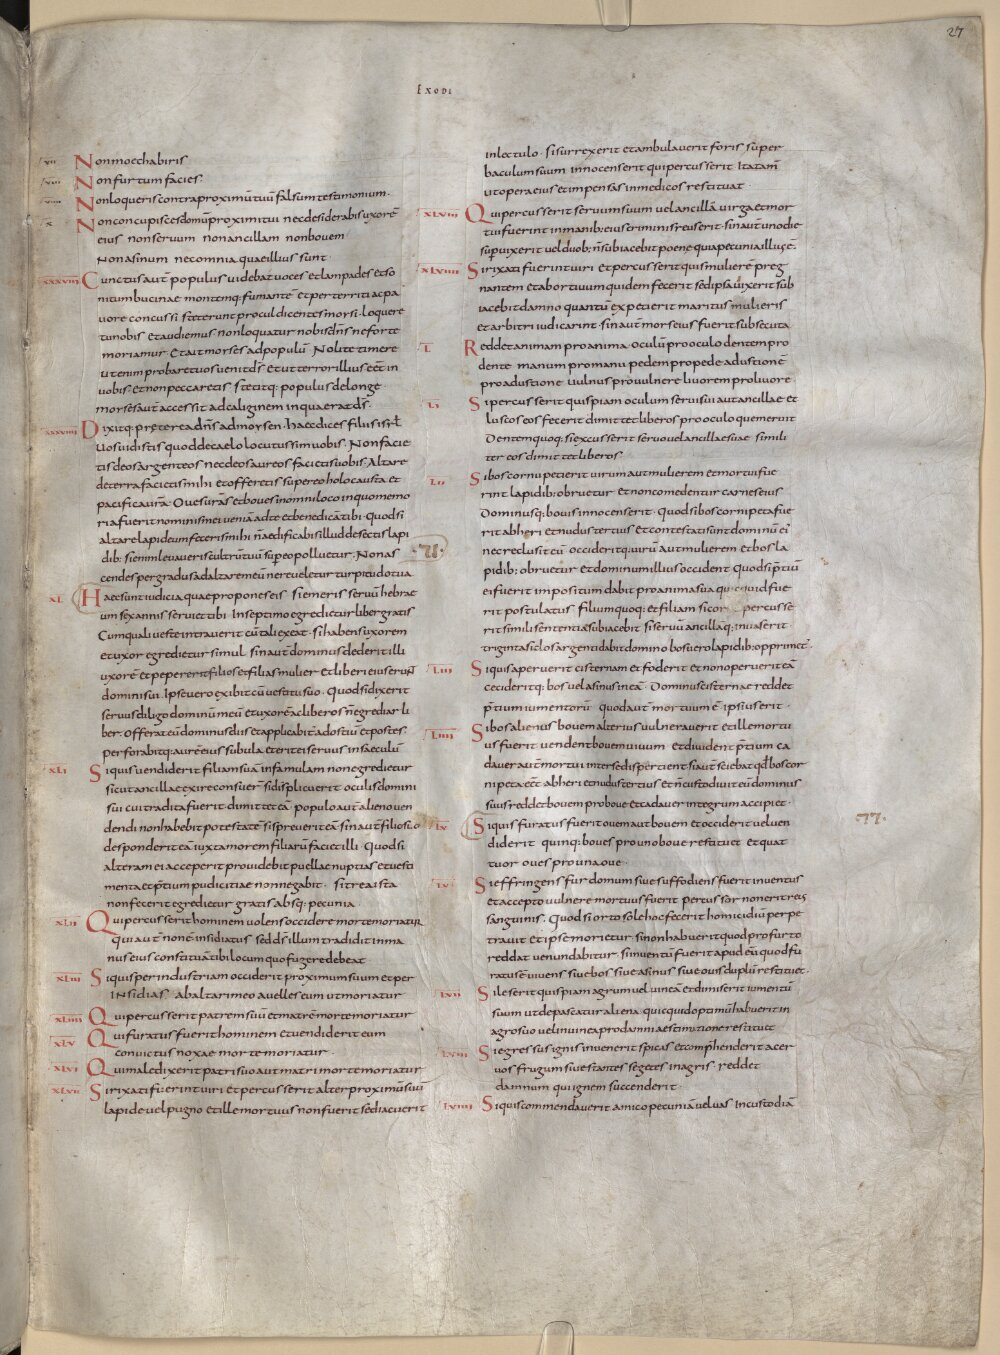 27
EXODI
VII Non moechaberis
VIII Non furtum facies·
VIIII Non loqueris contra proximū tuū falsum testimonium·
X Non concupisces domū proximi tui nec desiderabis uxorē
eius non servum non ancillam non bovem
Non asinum nec omnia quae illius sunt
XXXVIII Cunctus aut̄ populus videbat voces et lampades et so
nitum bucinae montemq; fumantē et perterriti ac pa
vore concussi steterunt procul dicentes moysi· loquere
tu nobis et audiemus non loquatur nobis dn̄s ne forte
moriamur· Et ait moyses ad populū· Nolite timere
ut enim probaret vos venit ds̄· Et ut terror illius eēt in
vobis· et non peccaretis· Stetitq; populus de longe
moyses aut̄ accessit ad caliginem in qua erat ds̄·
XXXVIIII Dixitq; prȩterea dn̄s ad moysen· haec dices filiis isrł
Vos vidistis quod de caelo locutus sim vobis· Non facie
tis deos argenteos nec deos aureos facietis vobis· Altare
de terra facietis mihi et offeretis super eo holocausta et
pacifica ur̄a· Oves ur̄as et boves in omni loco in quo memo
ria fuerit nominis mei veniā ad te et benedicā tibi· Quod si
altare lapideum feceris mihi n̄ aedificabis illud de sectis lapi
dib; si enim levaveris cultrū tuū sup eo polluetur· Non as
cendes per gradus ad altare meū ne reveletur turpitudo tua
XL Haec sunt iudicia quae propones eis· si emeris servū hebrae
um sex annis serviet tibi· In septimo egredietur liber gratis
Cum quali veste intraverit cū tali exeat· si habens uxorem
et uxor egredietur simul· sin aut̄ dominus dederit illi
uxorē et pepererit filios et filias mulier et liberi eius erunt
domini sui· Ipse vero exibit cū vestitu suo· Quod si dixerit
servus diligo dominū meū et uxorē ac liberos n̄ egrediar li
ber· Offerat eū dominus diis et applicabit̄ ad ostiū et postes·
perforabitq; aurē eius subula et erit ei servus in saeculū
XLI Si quis vendiderit filiam suā in famulam non egredietur
sicut ancillae exire consuer̄· si displicuerit oculis domini
sui cui tradita fuerit· dimittet eā· populo aut alieno ven
dendi non habebit potestatē si spreverit eā· sin aut̄ filio suo
desponderit eā iuxta morem filiarū faciet illi· Quod si
alteram ei acceperit providebit puellae nuptias et vesti
menta et p̄tium pudicitiae non negabit· si tria ista
non fecerit egredietur gratis absq; pecunia
XLII Qui percusserit hominem volens occidere morte moriatur
qui aut̄ non ē insidiatus sed ds̄ illum tradidit in ma
nus eius constituā tibi locum quo fugere debeat
XLIII Si quis per industriam occiderit proximum suum et per
Insidias ab altari meo avelles eum ut moriatur
XLIIII Qui percusserit patrem suū et matrē morte moriatur
XLV Qui furatus fuerit hominem et vendiderit eum
convictus noxae morte moriatur·
XLVI Qui maledixerit patri suo aut matri morte moriatur
XLVII Si rixati fuerint viri et percusserit alter proximū suū
lapide vel pugno et ille mortuus non fuerit sed iacuerit
in lectulo· si surrexerit et ambulaverit foris super
baculum suum innocens erit qui percusserit· Ita tam̄
ut opera eius et impensas in medicos restituat·
XLVIII Qui percusserit servum suum vel ancillā virga et mor
tui fuerint in manib; eius criminis reus erit· sin aut̄ uno die
supvixerit vel duob; n̄ subiacebit poene quia pecunia illius ē·
XLVIIII Si rixati fuerint viri et percusserit quis mulierē preg
nantem et abortivum quidem fecerit sed ipsa vixerit sub
iacebit damno quantū expetierit maritus mulieris
et arbitri iudicarint· sin aut̄ mors eius fuerit subsecuta
L Reddet animam pro anima· oculū pro oculo dentem pro
dente manum pro manu pedem pro pede adustionē
pro adustione vulnus pro vulnere livorem pro livore
LI Si percusserit quispiam oculum servi sui aut ancillae et
luscos eos fecerit dimittet liberos pro oculo quem eruit
Dentem quoq; si excusserit servo vel ancillae suae simili
ter eos dimittet liberos·
LII Si bos cornu petierit virum aut mulierem et mortui fue
rint lapidib; obruetur· et non comedentur carnes eius
Dominusq; bovis innocens erit· Quod si bos cornipeta fue
rit ab heri et nudius tertius et contestati sunt dominū ei'
nec reclusit eū occideritq; virū aut mulierem et bos la
pidib; obruetur et dominum illius occident· quod si p̄tiū
ei fuerit impositum dabit pro anima sua quicquid fue
rit postulatus· filium quoq; et filiam si cornu percusse
rit simili sententia subiacebit si servū ancillāq; invaserit·
triginta siclos argenti dabit domino bos vero lapidib; opprimet'·
LIII Si quis aperuerit cisternam et foderit et non operuerit eā
cecideritq; bos vel asinus in eā· Dominus cisternae reddet
p̄tium iumentorū quod aut̄ mortuum ē ipsius erit·
LIIII Si bos alienus bovem alterius vulneraverit et ille mortu
us fuerit vendent bovem vivum et divident p̄tium ca
daver aut̄ mortui inter se dispertient· si aut̄ sciebat qd̄ bos cor
nipeta eēt ab heri et nudius tertius et n̄ custodivit eū dominus
suus reddet bovem pro bove et cadaver integrum accipiet·
LV Si quis furatus fuerit ovem aut bovem et occiderit vel ven
diderit quinq; boves pro uno bove restituet et quat
tuor oves pro una ove·
LVI Si effringens fur domum sive suffodiens fuerit inventus
et accepto vulnere mortuus fuerit percussor non erit reus
sanguinis· Quod si orto sole hoc fecerit homicidiū perpe
travit et ipse morietur· si non habuerit quod pro furto
reddat venundabitur· si inventū fuerit apud eū quod fu
ratus ē vivens sive bos sive asinus sive ovis duplū restituet·
LVII Si leserit quispiam agrum vel vineā et dimiserit iumentū
suum ut depascatur aliena· quicquid optimū habuerit in
agro suo vel in vinea pro damni aestimatione restituet
LVIII Si egressus ignis invenerit spicas et comp̄henderit acer
vos frugum sive stantes segetes in agris· reddet
damnum qui ignem succenderit·
LVIIII Si quis commendaverit amico pecuniā vel vas in custodiā